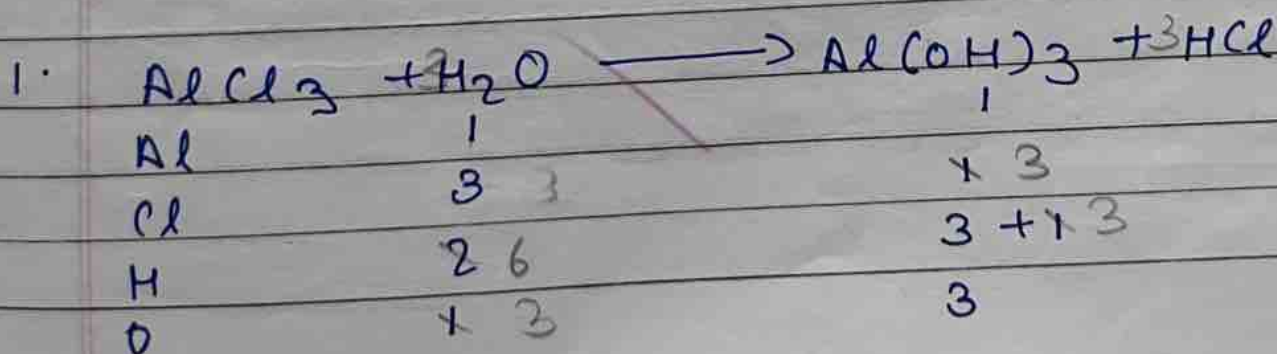 1. AlCl3 + 3H2O → Al(OH)3 + 3HCl
Al 1 1
Cl 3 3 1 3
H 2 6 3 + 1 3
O 1 3 3